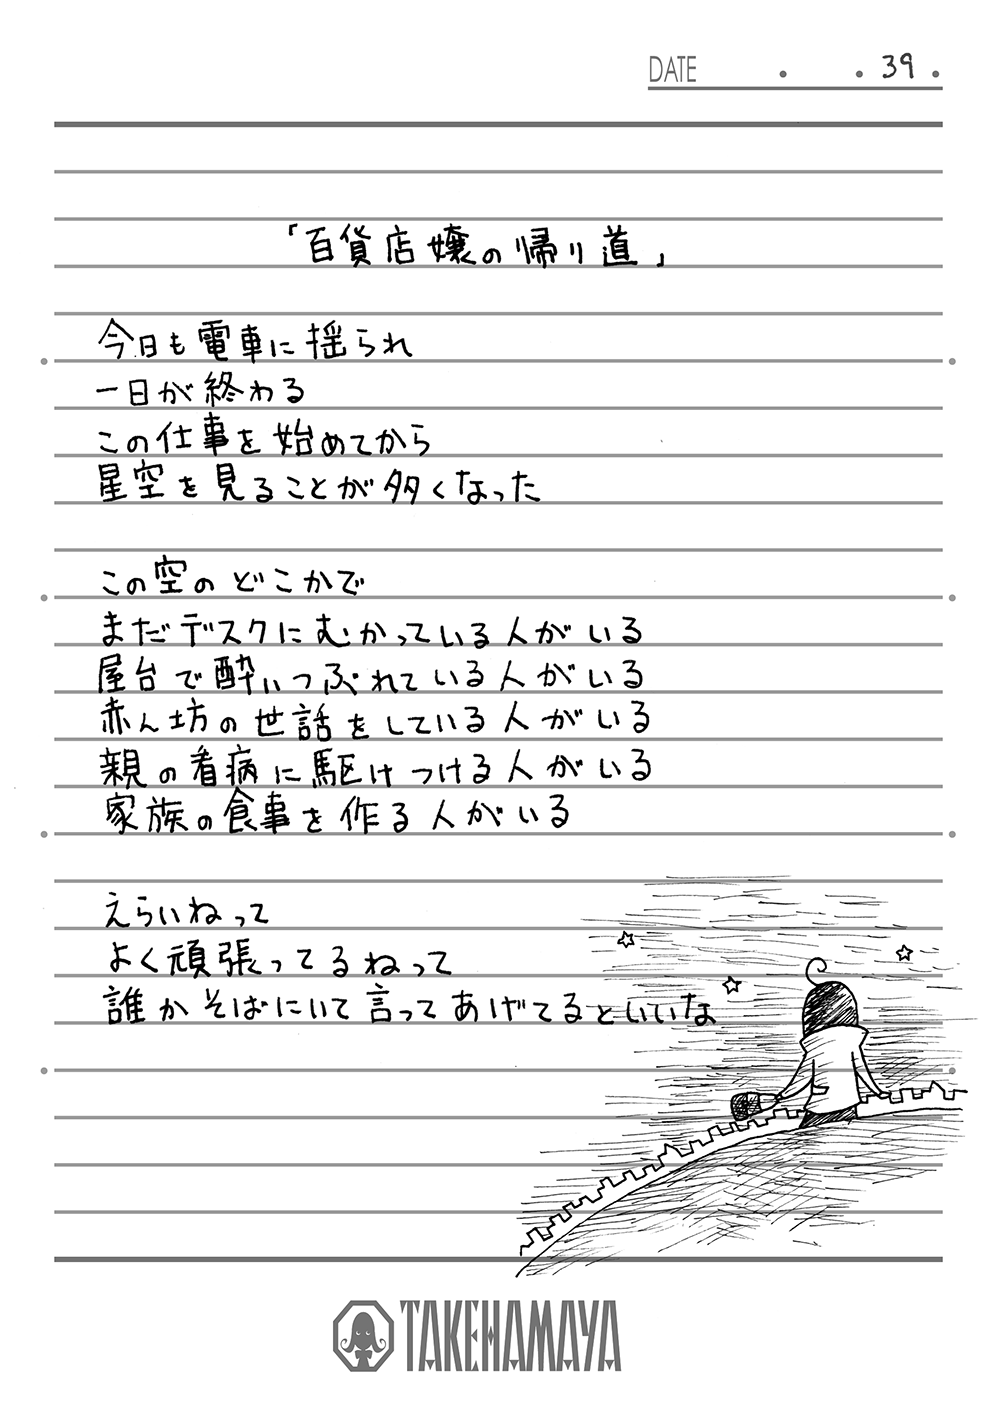 DATE . . 39 .
「百貨店嬢の帰り道」
今日も電車に揺られ
一日が終わる
この仕事を始めてから
星空を見ることが多くなった
この空のどこかで
まだデスクにむかっている人がいる
屋台で酔いつぶれている人がいる
赤ん坊の世話をしている人がいる
親の看病に駆けつける人がいる
家族の食事を作る人がいる
えらいねって
よく頑張ってるねって
誰かそばにいて言ってあげてるといいな
TAKEHAMAYA